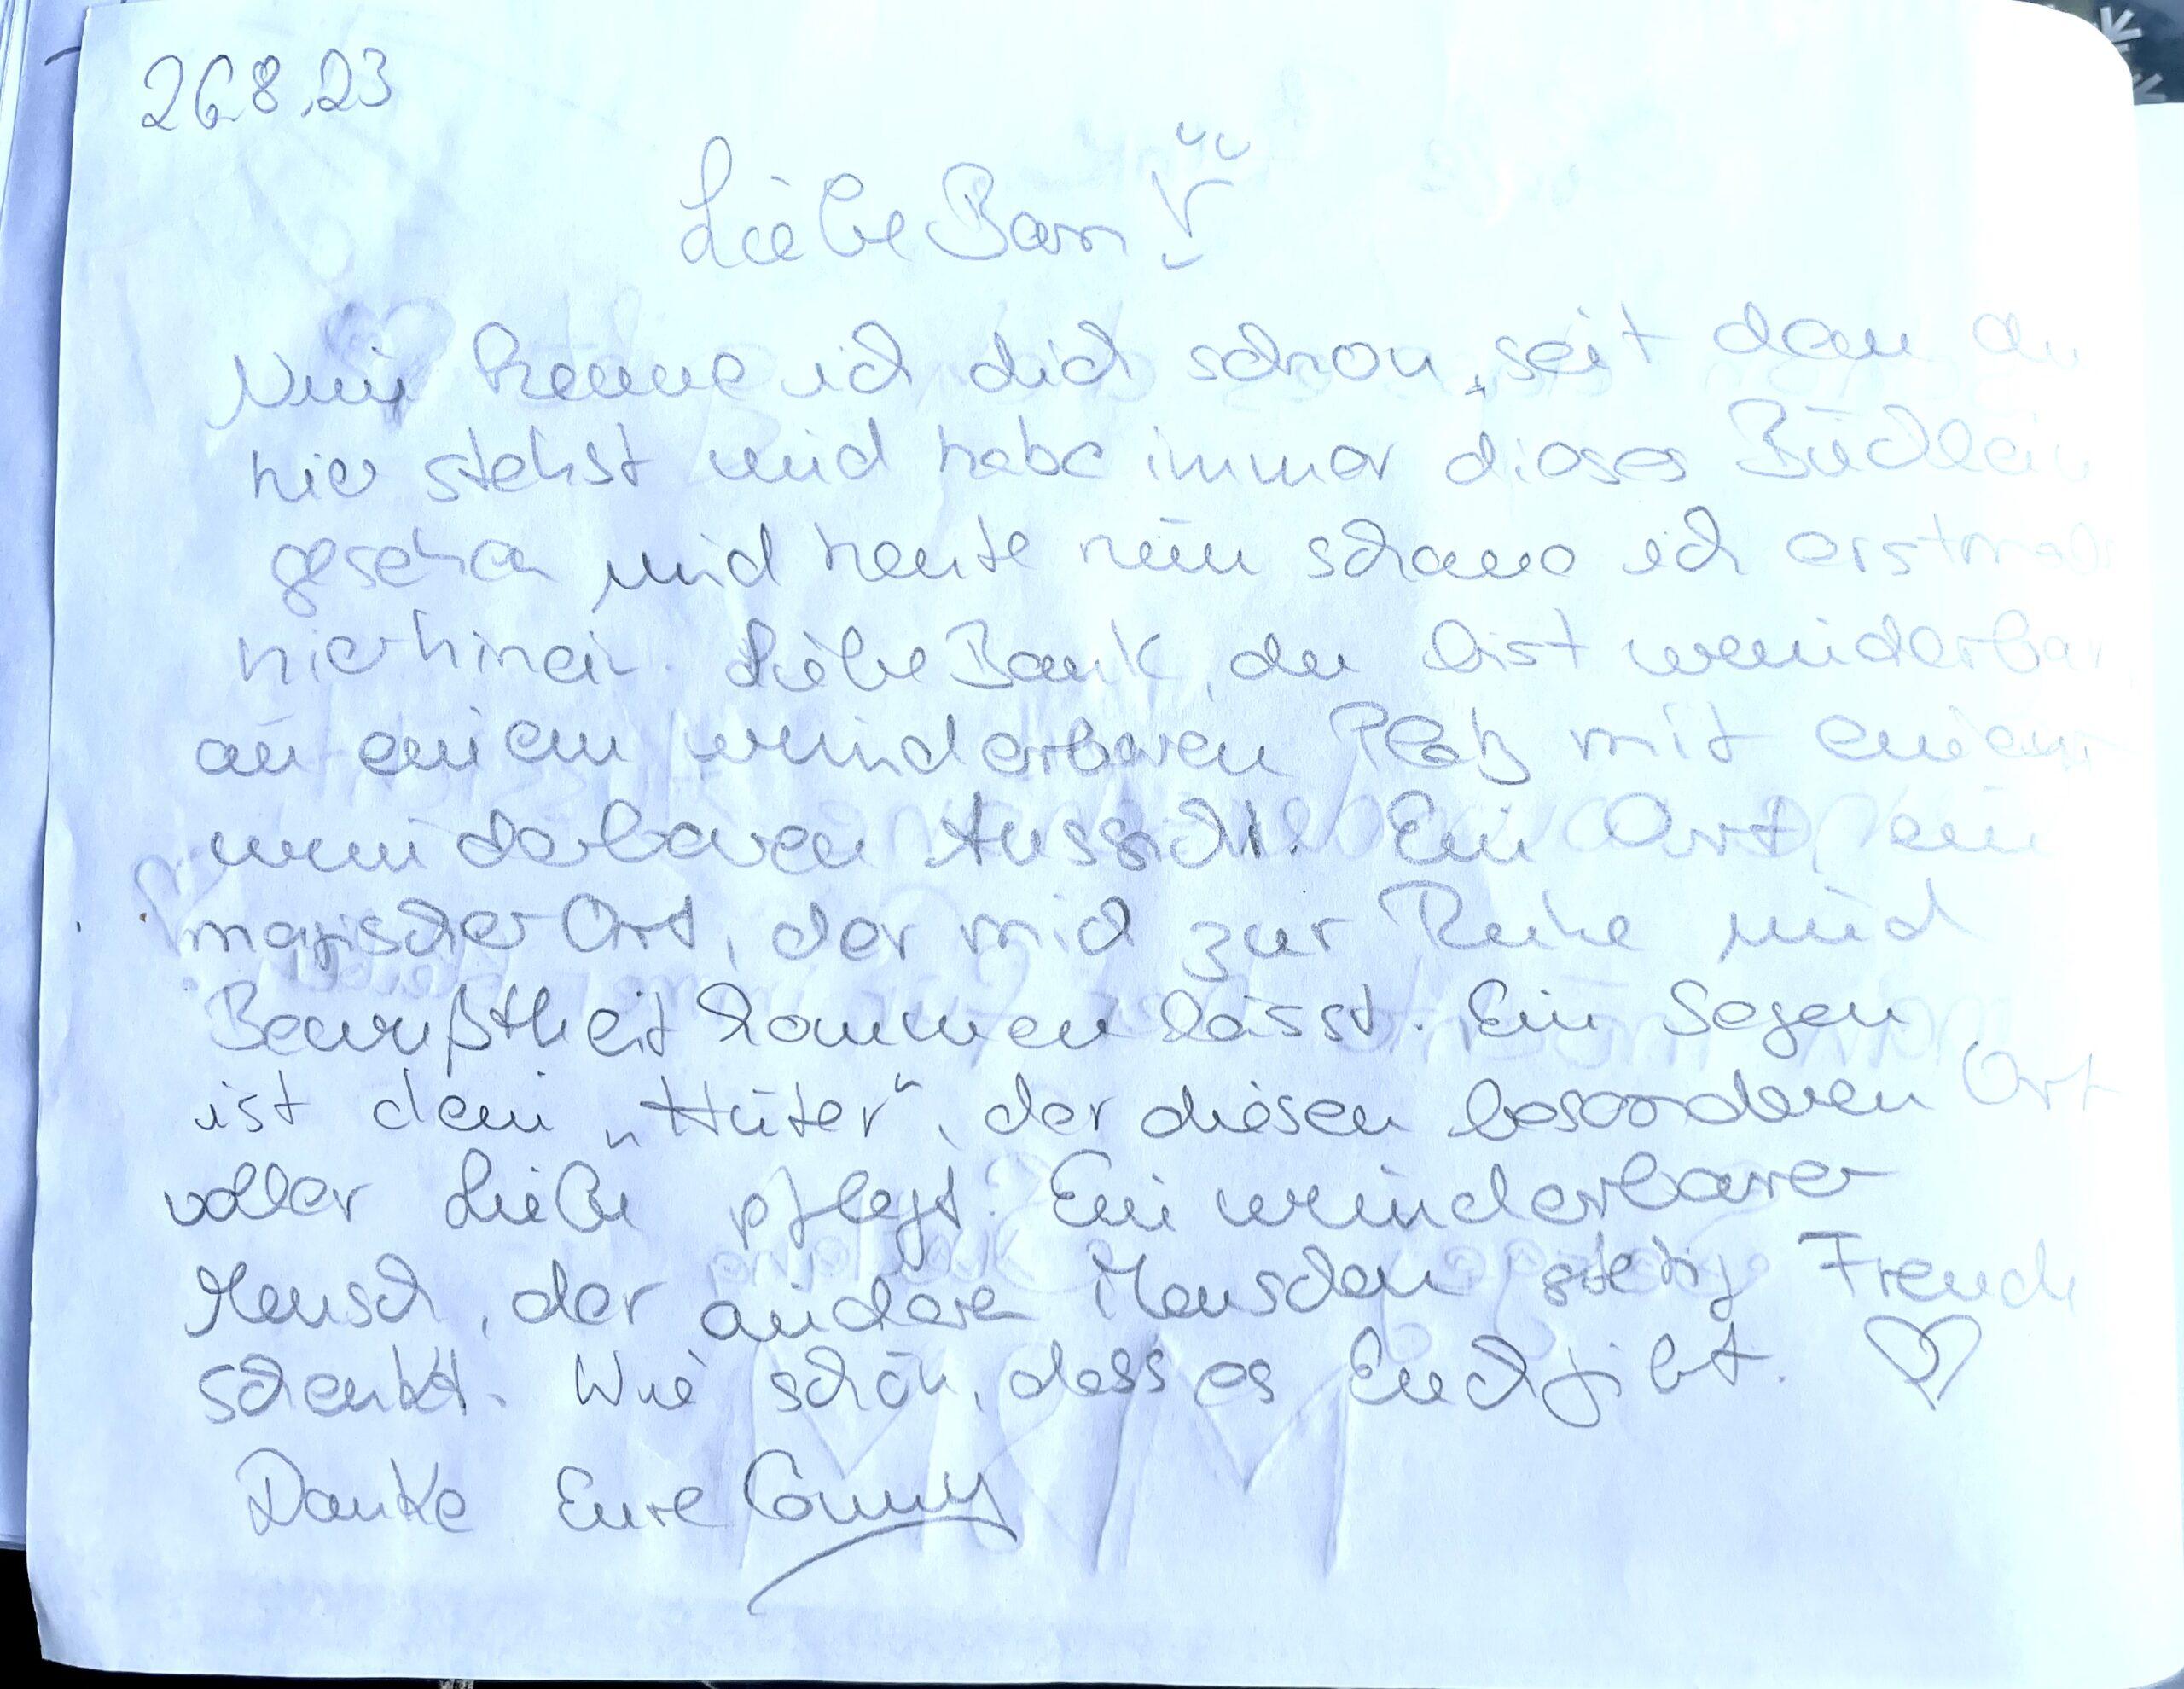 26.8.23
Liebe Bank
Nun kenne ich dich schon, seit dem du
hier stehst und habe immer dieses Büchlein
gesehen und heute nun schaue ich erstmals
hier hinein. Liebe Bank, du bist wunderbar
an einem wunderbaren Platz mit einer
wunderbaren Aussicht. Ein Ort, ein
magischer Ort, der mich zur Ruhe und
Bewußtheit kommen lässt. Ein Segen
ist dein „Hüter“, der diesen besonderen Ort
voller Liebe pflegt. Ein wunderbarer
Mensch, der andere Menschen stetig Freude
schenkt. Wie schön, dass es Euch gibt.
Danke Eure Conny